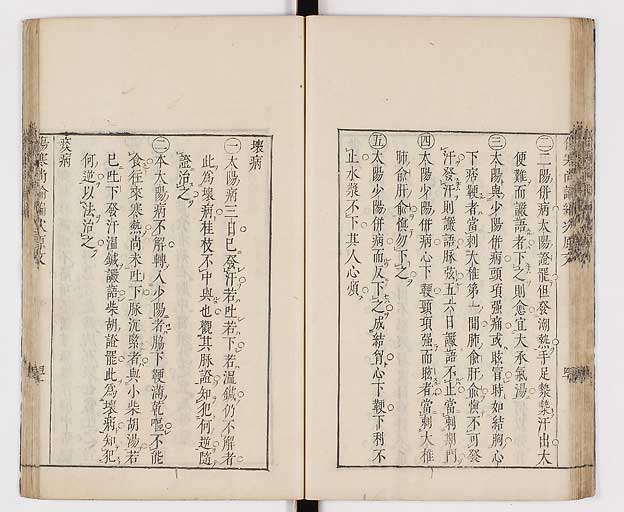 ㊁二陽併病太陽證罷但發潮熱手足漐漐汗出大
便難而讝語者下之則愈宜大承氣湯
㊂太陽與少陽併病頭項强痛或眩冒時如結胸心
下痞鞕者當刺大椎第一間肺俞肝俞愼不可發
汗發汗則讝語脉弦五六日讝語不止當刺期門
㊃太陽少陽併病心下鞕頸項强而眩者當刺大椎
肺俞肝俞愼勿下之
㊄太陽少陽併病而反下之成結胷心下鞕下利不
止水漿不下其人心煩
壞病
㊀太陽病三日已發汗若吐若下若溫鍼仍不解者
此爲壞病桂枝不中與也觀其脉證知犯何逆隨
證治之
㊁本太陽病不解轉入少陽者脇下鞕滿乾嘔不能
食往來寒熱尚未吐下脉沉緊者與小柴胡湯若
已吐下發汗溫鍼讝語柴胡證罷此爲壞病知犯
何逆以法治之
痰病